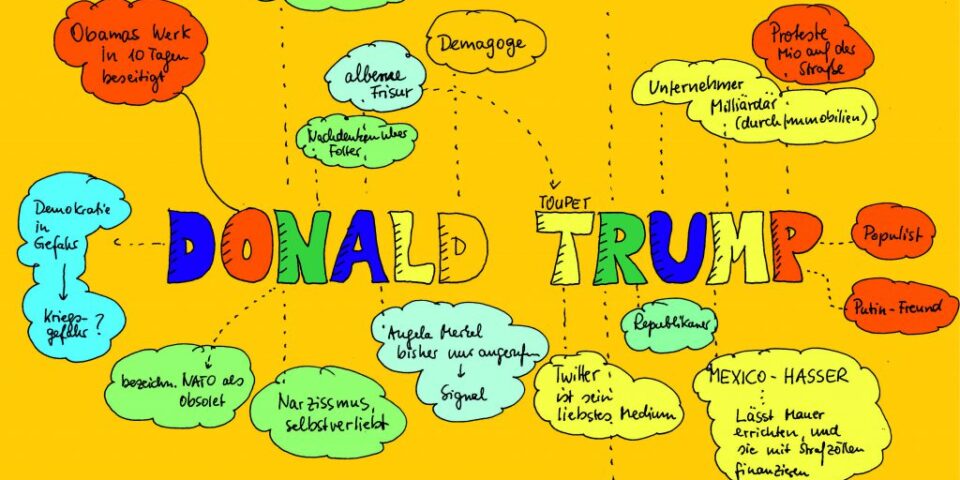 Obamas Werk
in 10 Tagen
beseitigt
Demagoge
alberne
Frisur
Nachdenken über
Folter
Proteste
Mio auf der
Straße
Unternehmer
Milliardär
(durch Immobilien)
Demokratie
in
Gefahr
Kriegs-
gefahr?
TOUPET
DONALD TRUMP
Populist
Putin-Freund
Republikaner
bezeichn. NATO als
obsolet
Narzissmus,
selbstverliebt
Angela Merkel
bisher nur angerufen
Signal
Twitter
ist sein
liebstes Medium
MEXICO-HASSER
Lässt Mauer
errichten, und
sie mit Strafzöllen
finanzieren